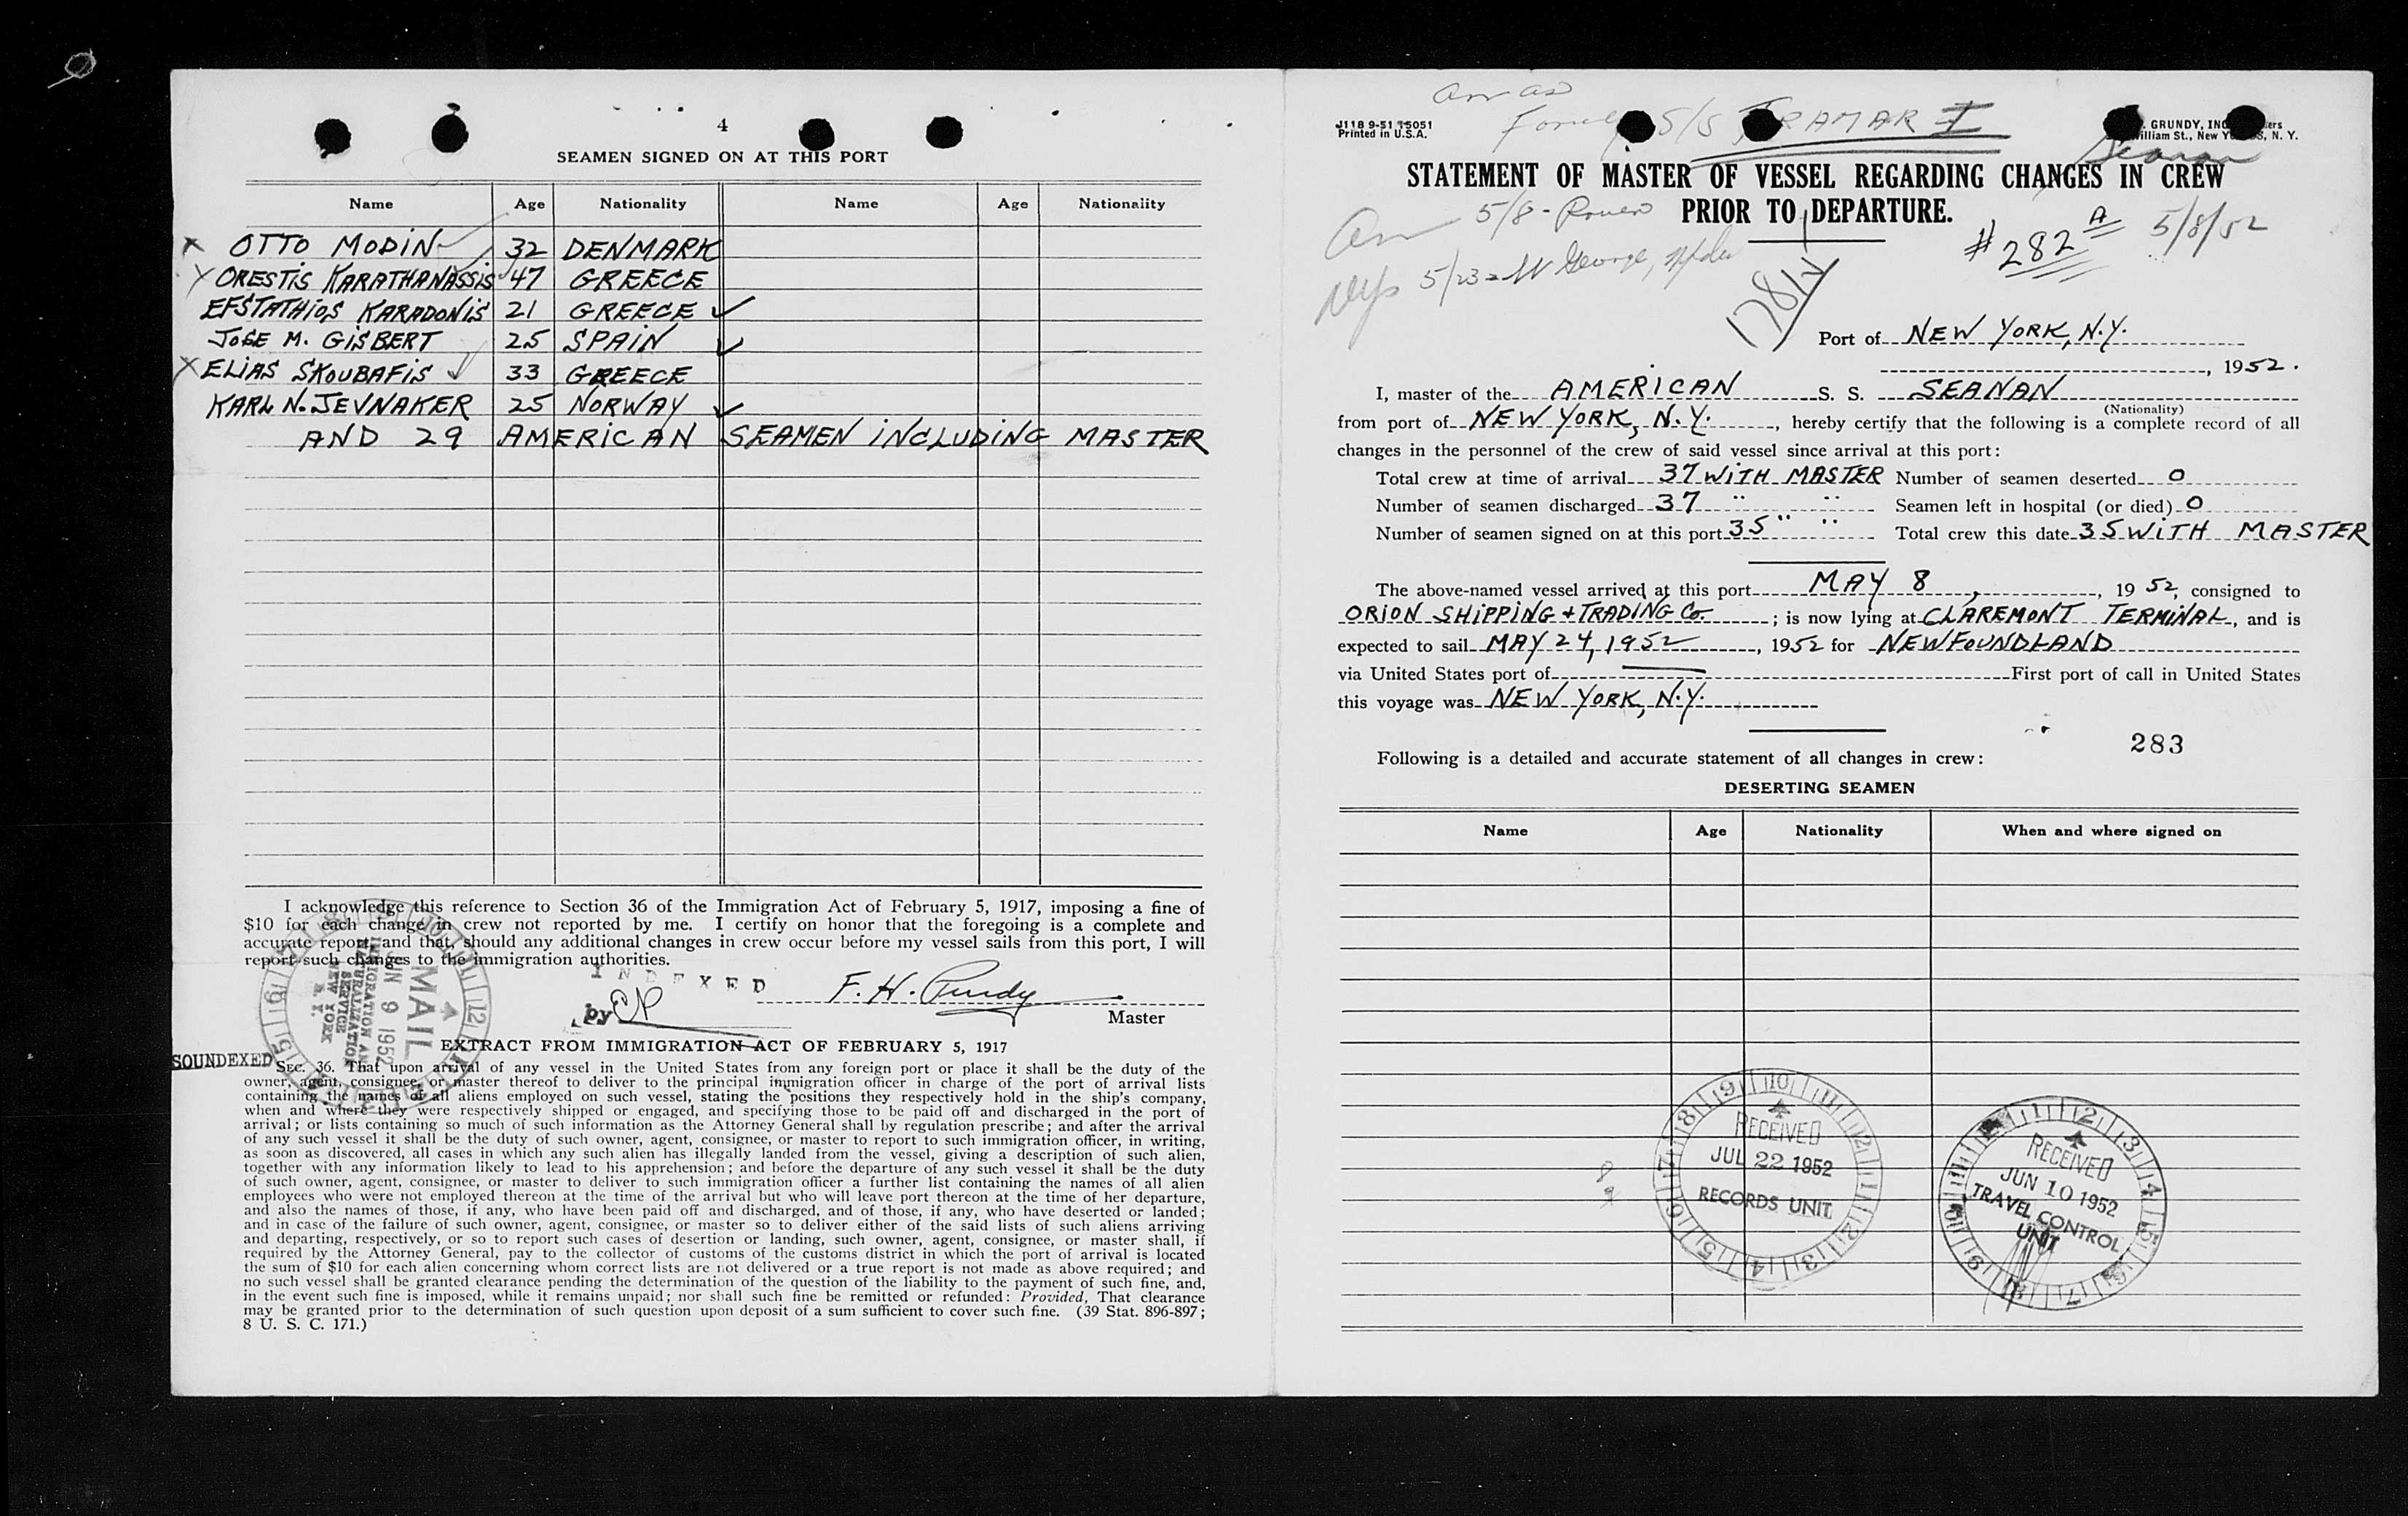 4
SEAMEN SIGNED ON AT THIS PORT
Name Age Nationality Name Age Nationality
OTTO MODIN 32 DENMARK
ORESTIS KARATHANASSIS 47 GREECE
EFSTATHIOS KARADONIS 21 GREECE
JOSE M. GISBERT 25 SPAIN
ELIAS SKOUBAFIS 33 GREECE
KARL N. JEVNAKER 25 NORWAY
AND 29 AMERICAN SEAMEN INCLUDING MASTER
I acknowledge this reference to Section 36 of the Immigration Act of February 5, 1917, imposing a fine of
$10 for each change in crew not reported by me. I certify on honor that the foregoing is a complete and
accurate report, and that, should any additional changes in crew occur before my vessel sails from this port, I will
report such changes to the immigration authorities.
INDEXED
by
F. H. Purdy
Master
MAIL
JUN 9 1952
IMMIGRATION AND
NATURALIZATION
SERVICE
NEW YORK
N. Y.
EXTRACT FROM IMMIGRATION ACT OF FEBRUARY 5, 1917
SOUNDEXED
SEC. 36. That upon arrival of any vessel in the United States from any foreign port or place it shall be the duty of the
owner, agent, consignee, or master thereof to deliver to the principal immigration officer in charge of the port of arrival lists
containing the names of all aliens employed on such vessel, stating the positions they respectively hold in the ship's company,
when and where they were respectively shipped or engaged, and specifying those to be paid off and discharged in the port of
arrival; or lists containing so much of such information as the Attorney General shall by regulation prescribe; and after the arrival
of any such vessel it shall be the duty of such owner, agent, consignee, or master to report to such immigration officer, in writing,
as soon as discovered, all cases in which any such alien has illegally landed from the vessel, giving a description of such alien,
together with any information likely to lead to his apprehension; and before the departure of any such vessel it shall be the duty
of such owner, agent, consignee, or master to deliver to such immigration officer a further list containing the names of all alien
employees who were not employed thereon at the time of the arrival but who will leave port thereon at the time of her departure,
and also the names of those, if any, who have been paid off and discharged, and of those, if any, who have deserted or landed;
and in case of the failure of such owner, agent, consignee, or master so to deliver either of the said lists of such aliens arriving
and departing, respectively, or so to report such cases of desertion or landing, such owner, agent, consignee, or master shall, if
required by the Attorney General, pay to the collector of customs of the customs district in which the port of arrival is located
the sum of $10 for each alien concerning whom correct lists are not delivered or a true report is not made as above required; and
no such vessel shall be granted clearance pending the determination of the question of the liability to the payment of such fine, and,
in the event such fine is imposed, while it remains unpaid; nor shall such fine be remitted or refunded: Provided, That clearance
may be granted prior to the determination of such question upon deposit of a sum sufficient to cover such fine. (39 Stat. 896-897;
8 U. S. C. 171.)
J118 9-51 15051
Printed in U.S.A.
GRUNDY, INC.
William St., New York, N. Y.
S/S TRAMAR I
Seanan
STATEMENT OF MASTER OF VESSEL REGARDING CHANGES IN CREW
PRIOR TO DEPARTURE.
5/8 - Rouen
#282 A 5/8/52
5/23 - St George, Nfld
Port of NEW YORK, N.Y.
, 1952.
I, master of the AMERICAN S. S. SEANAN
(Nationality)
from port of NEW YORK, N.Y. , hereby certify that the following is a complete record of all
changes in the personnel of the crew of said vessel since arrival at this port:
Total crew at time of arrival 37 WITH MASTER Number of seamen deserted 0
Number of seamen discharged 37 " " Seamen left in hospital (or died) 0
Number of seamen signed on at this port 35 " " Total crew this date 35 WITH MASTER
The above-named vessel arrived at this port MAY 8 , 1952, consigned to
ORION SHIPPING + TRADING CO. ; is now lying at CLAREMONT TERMINAL, and is
expected to sail MAY 24, 1952 , 1952 for NEWFOUNDLAND
via United States port of First port of call in United States
this voyage was NEW YORK, N.Y.
283
Following is a detailed and accurate statement of all changes in crew:
DESERTING SEAMEN
Name Age Nationality When and where signed on
RECEIVED
JUL 22 1952
RECORDS UNIT
RECEIVED
JUN 10 1952
TRAVEL CONTROL
UNIT